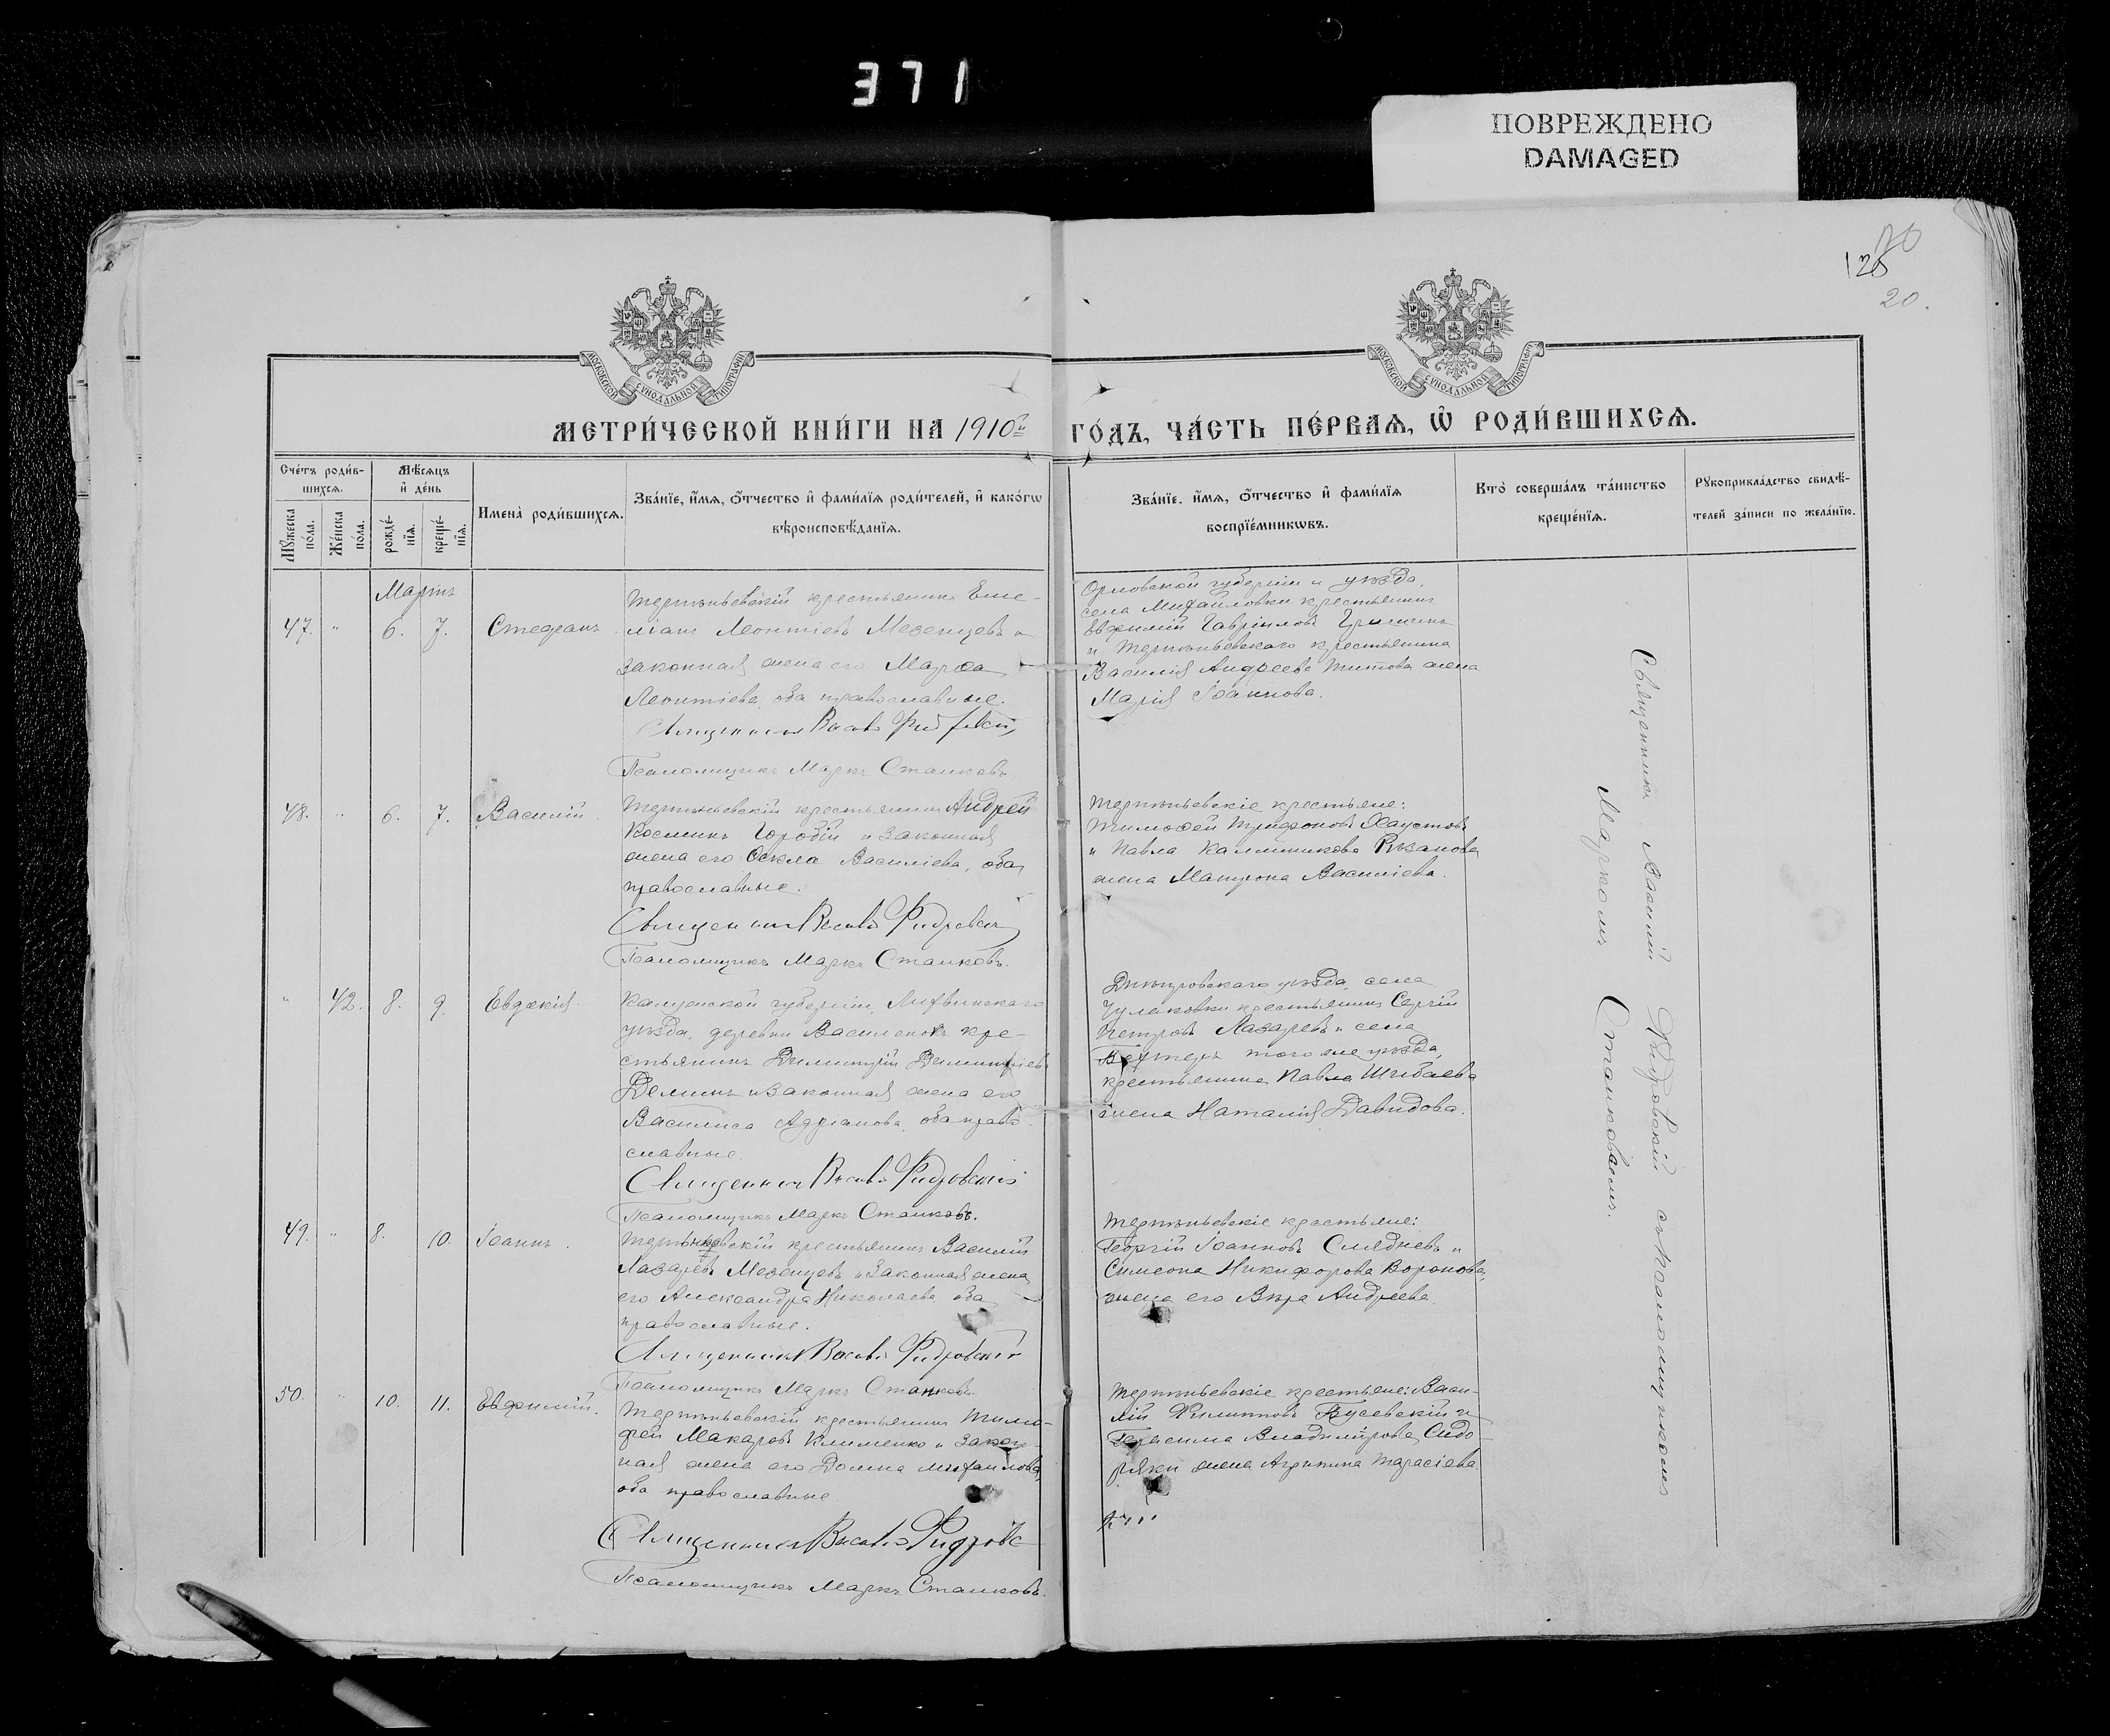 371
ПОВРЕЖДЕНО
DAMAGED
125
20.
МОСКОВСКОЙ СУНОДАЛЬНОЙ ТИПОГРАФІИ
МОСКОВСКОЙ СУНОДАЛЬНОЙ ТИПОГРАФІИ
МЕТРИ́ЧЕСКОЙ КНИ́ГИ НА 1910й ГО́ДЪ, ЧА́СТЬ ПЕ́РВАѦ, Ѽ РОДИ́ВШИХСѦ.
Сче́тъ роди́в-
шихсѧ.
Мꙋ́жеска
по́ла.
Же́нска
по́ла.
Мѣ́сѧцъ
и҆ де́нь
рожде́-
нїѧ.
креще́-
нїѧ.
И҆мена̀ роди́вшихсѧ.
Зва́нїе, и҆́мѧ, ѻ҆́тчество и҆ фами́лїѧ роди́телей, и҆ како́гѡ
вѣроисповѣ́данїѧ.
Зва́нїе, и҆́мѧ, ѻ҆́тчество и҆ фами́лїѧ
воспрїе́мникѡвъ.
Кто̀ соверша́лъ та́инство
креще́нїѧ.
Рꙋкоприкла́дство свидѣ́-
телей за́писи по жела́нїю.
Мартъ
47. " 6. 7. Стефанъ
Терпѣньевскій крестьянинъ Еме-
ліанъ Леонтіевъ Мезенцевъ и
законная жена его Марѳа
Леонтіева, оба православные.
Священникъ
Псаломщикъ Маркъ Станковъ.
Орловской губерніи и уѣзда,
села Михайловки крестьянинъ
Евфимій Гавріиловъ
и Терпѣньевскаго крестьянина
Василія Андреева Титова жена
Марія Іоаннова.
48. " 6. 7. Василій.
Терпѣньевскій крестьянинъ Андрей
Косминъ и законная
жена его Ѳекла Василіева, оба
православные.
Священникъ
Псаломщикъ Маркъ Станковъ.
Терпѣньевскіе крестьяне:
Тимоѳей Трифоновъ Хаустовъ
и Павла Каллиникова Рязанова
жена Матрона Василіева.
" 42. 8. 9. Евдокія
Калужской губерніи, Лихвинскаго
уѣзда, деревни кре-
стьянинъ Димитрій Димитріевъ
Деминъ и законная жена его
Василиса Адріанова, оба право-
славные
Священникъ Фидровскій
Псаломщикъ Маркъ Станковъ.
Днѣпровскаго уѣзда, села
Чулаковки крестьянинъ Сергій
Петровъ Лазаревъ и села
того же уѣзда,
крестьянина Павла Шибаева
жена Наталія Давидова.
49. " 8. 10. Іоаннъ.
крестьянинъ Василій
Лазаревъ Мезенцевъ и законная жена
его Александра Николаева оба
православные.
Священникъ Фидровскій
Псаломщикъ Маркъ Станковъ.
Терпѣньевскіе крестьяне:
Георгій Іоанновъ Слядневъ и
Симеона Никифорова Воронова,
жена его Вѣра Андреева.
50. " 10. 11. Евфимій.
Терпѣньевскій крестьянинъ Тимо-
фей Макаровъ Клименко и закон-
ная жена его Домна Михаилова,
оба православные
Священникъ
Псаломщикъ Маркъ Станковъ.
Терпѣньевскіе крестьяне: Васи-
лій Филипповъ Бусевскій и
Герасима Владимірова Сидо-
ряки жена Агрипина Тарасіева.
Священникъ Василій Фидровскій съ псаломщикомъ
Маркомъ Станковымъ.